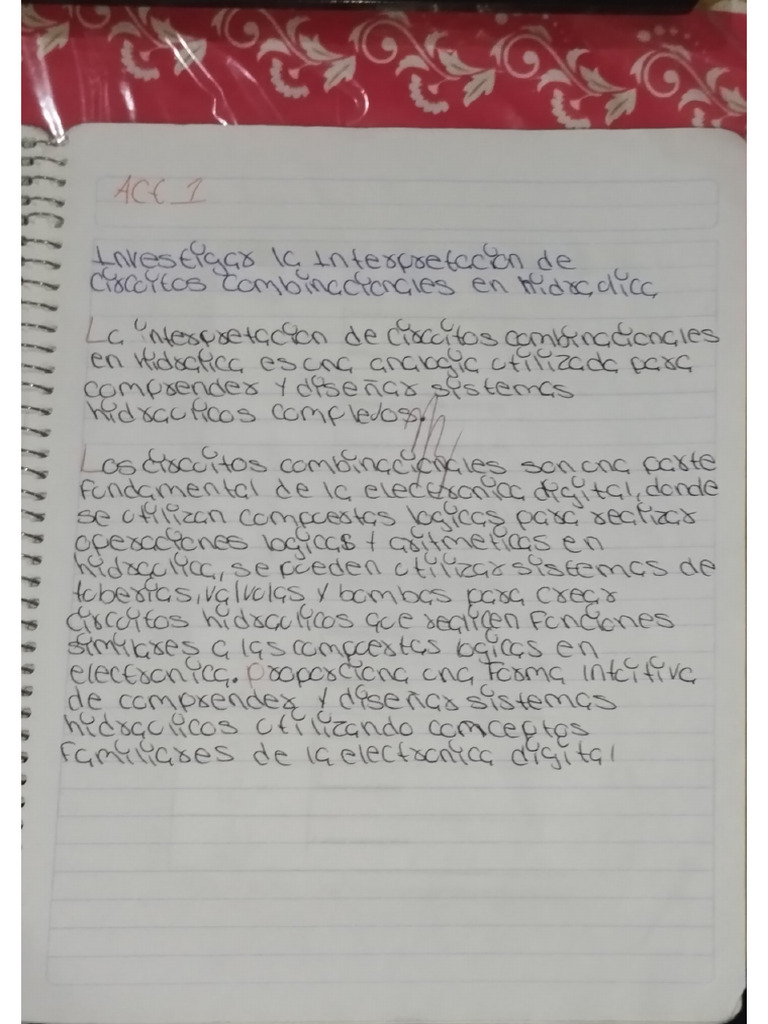 Act 1
Investigar la interpretacion de
circuitos combinacionales en Hidraulica
La interpretacion de circuitos combinacionales
en Hidraulica es una analogia utilizada para
comprender y diseñar sistemas
hidraulicos complejos.
Los circuitos combinacionales son una parte
fundamental de la electronica digital, donde
se utilizan compuertas logicas para realizar
operaciones logicas y aritmeticas en
hidraulica, se pueden utilizar sistemas de
tuberias, valvulas y bombas para crear
circuitos hidraulicos que realicen funciones
similares a las compuertas logicas en
electronica. Proporciona una forma intuitiva
de comprender y diseñar sistemas
hidraulicos utilizando conceptos
familiares de la electronica digital